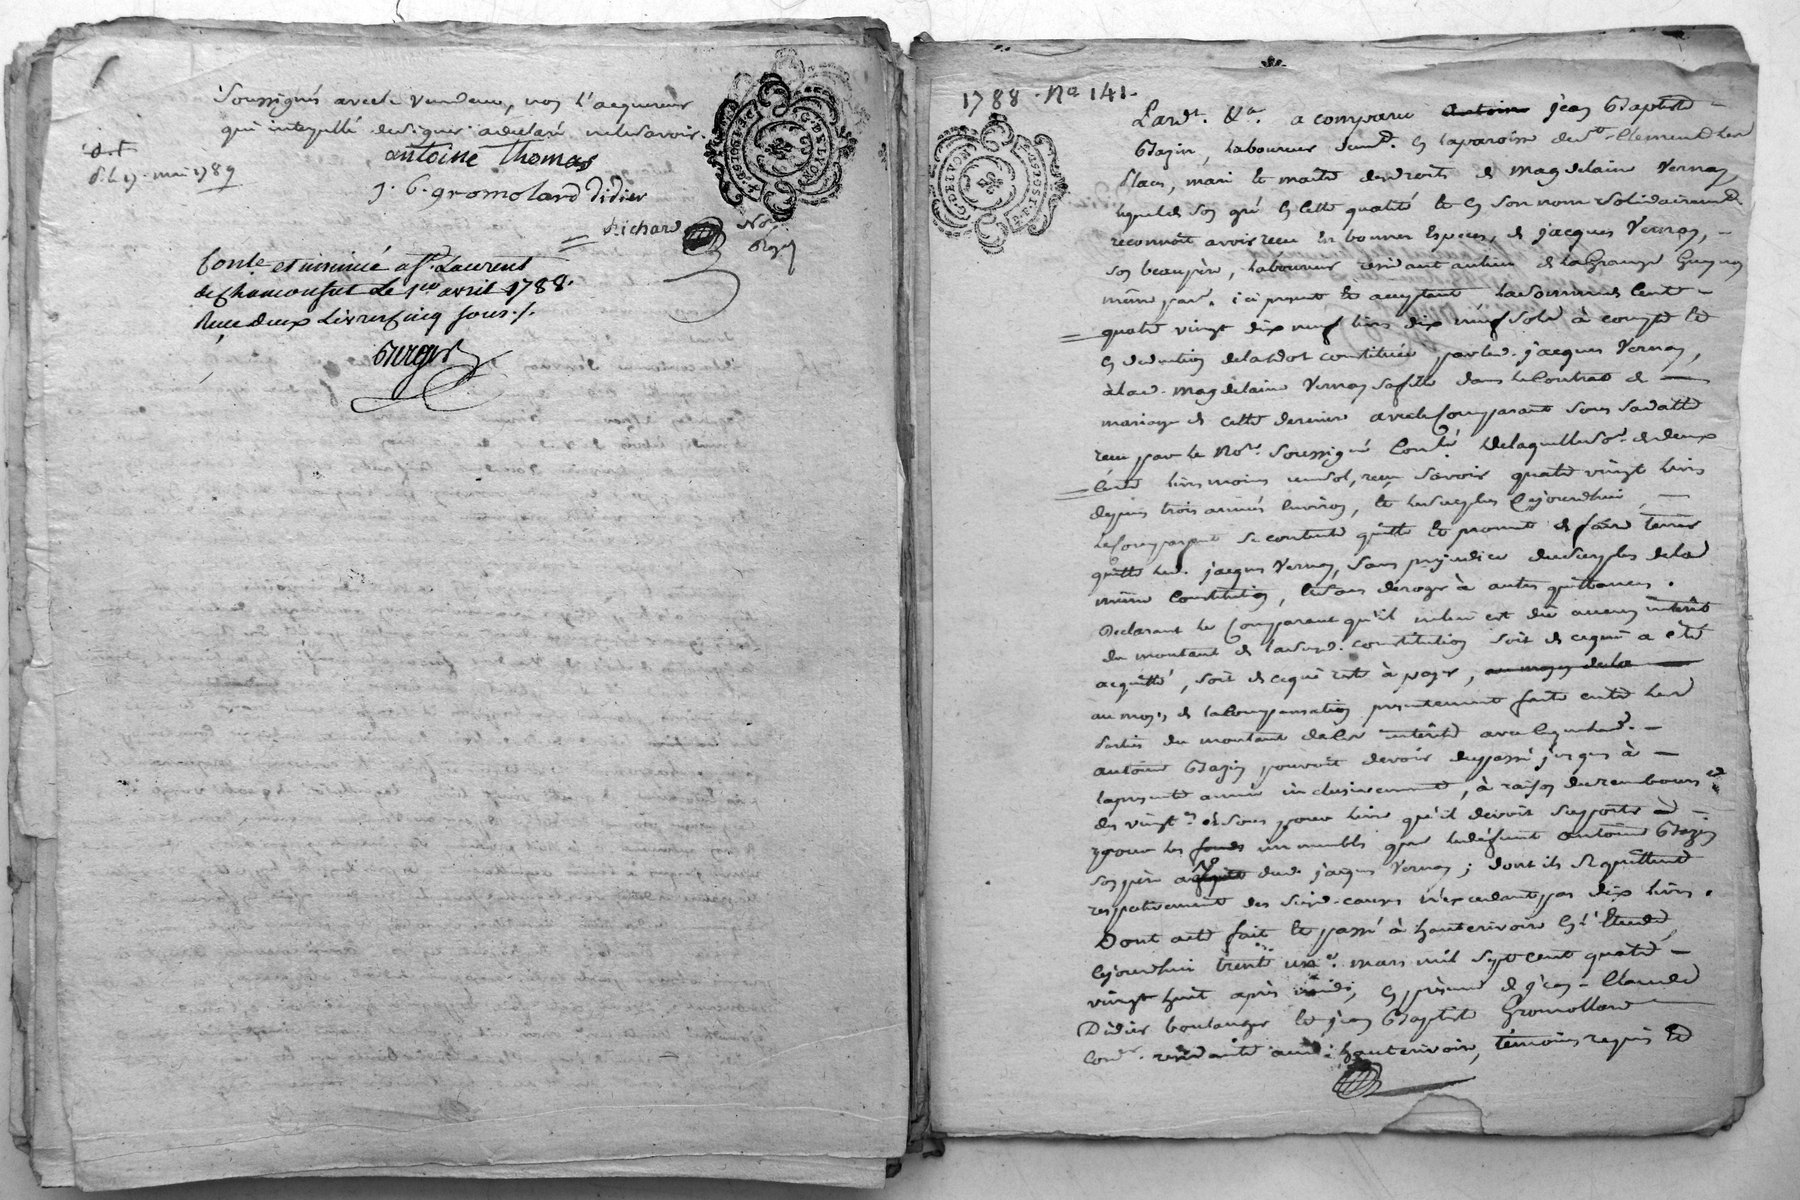 Soussignés avec le vendeur, non l'acquereur
qui interpellé de signer a declaré ne le savoir.
d. l. 17. mai 1789
antoine thomas
J. B. gromolard Didier
Richard No
Roy
G. DE LYON
Conlé et insinué a St. Laurent
de Chamousset Le 1er avril 1788.
Recu deux Livres cinq sous ./.
1788. Na 141.
G. DE LYON
Pardt. &a. a comparu Antoine jean Baptiste
Bazin, laboureur demt. en la paroisse de St. Clement les
places, mari et maitre des droits de magdelaine Vernay,
lequel de son gré en cette qualité et en son nom solidairemt.
reconnoit avoir recu en bonnes especes, de jacques Vernay,
son beaupère, laboureur résidant au lieu de la Grange
même par. ici present et acceptant la somme de Cent
quatre vingt dix neuf livres dix neuf sols à compte et
en deduction de la dot constituée par led. jacques Vernay,
à lad. magdelaine Vernay sa fille dans le Contrat de
mariage de cette derniere avec le Comparant sous sa datte
recu par le Nore. soussigné Conlé. De laquelle so. de deux
cents livres moins un sol, recu savoir quatre vingt livres
depuis trois années environ, et le surplus cejourdhui,
le Comparant se contente quitte et promet de faire tenir
quitte led. jacques Vernay, sans prejudice du surplus de la
même Constitution, et sans déroger à autres quittances.
Declarant le Comparant qu'il ne lui est dû aucun intérêt
du montant de la susd. constitution soit de ce qui a été
acquitté, soit de ce qui reste à payer, au moyen de la
au moyen de la Compensation presentement faite entre les
parties du montant de les intérêts avec ce que led.
antoine Bazin pouvoit devoir du passé jusques à
la presente année inclusivement, à raison du rembourst.
des vingt et sous pour livre qu'il devoit supporter
pour les fonds immeubles que led. défunt antoine Bazin
son père dud. jacques Vernay; dont ils se quittent
respectivement des susd. causes n'excedant pas dix livres.
Dont acte fait et passé à hauterivoire en l'Etude
cejourdhui trente un. mars mil sept cent quatre
vingt huit après midi, en présence de jean Claude
Didier boulanger et jean Baptiste Gromollard
Cordr. résidants aud. hauterivoire, témoins requis et